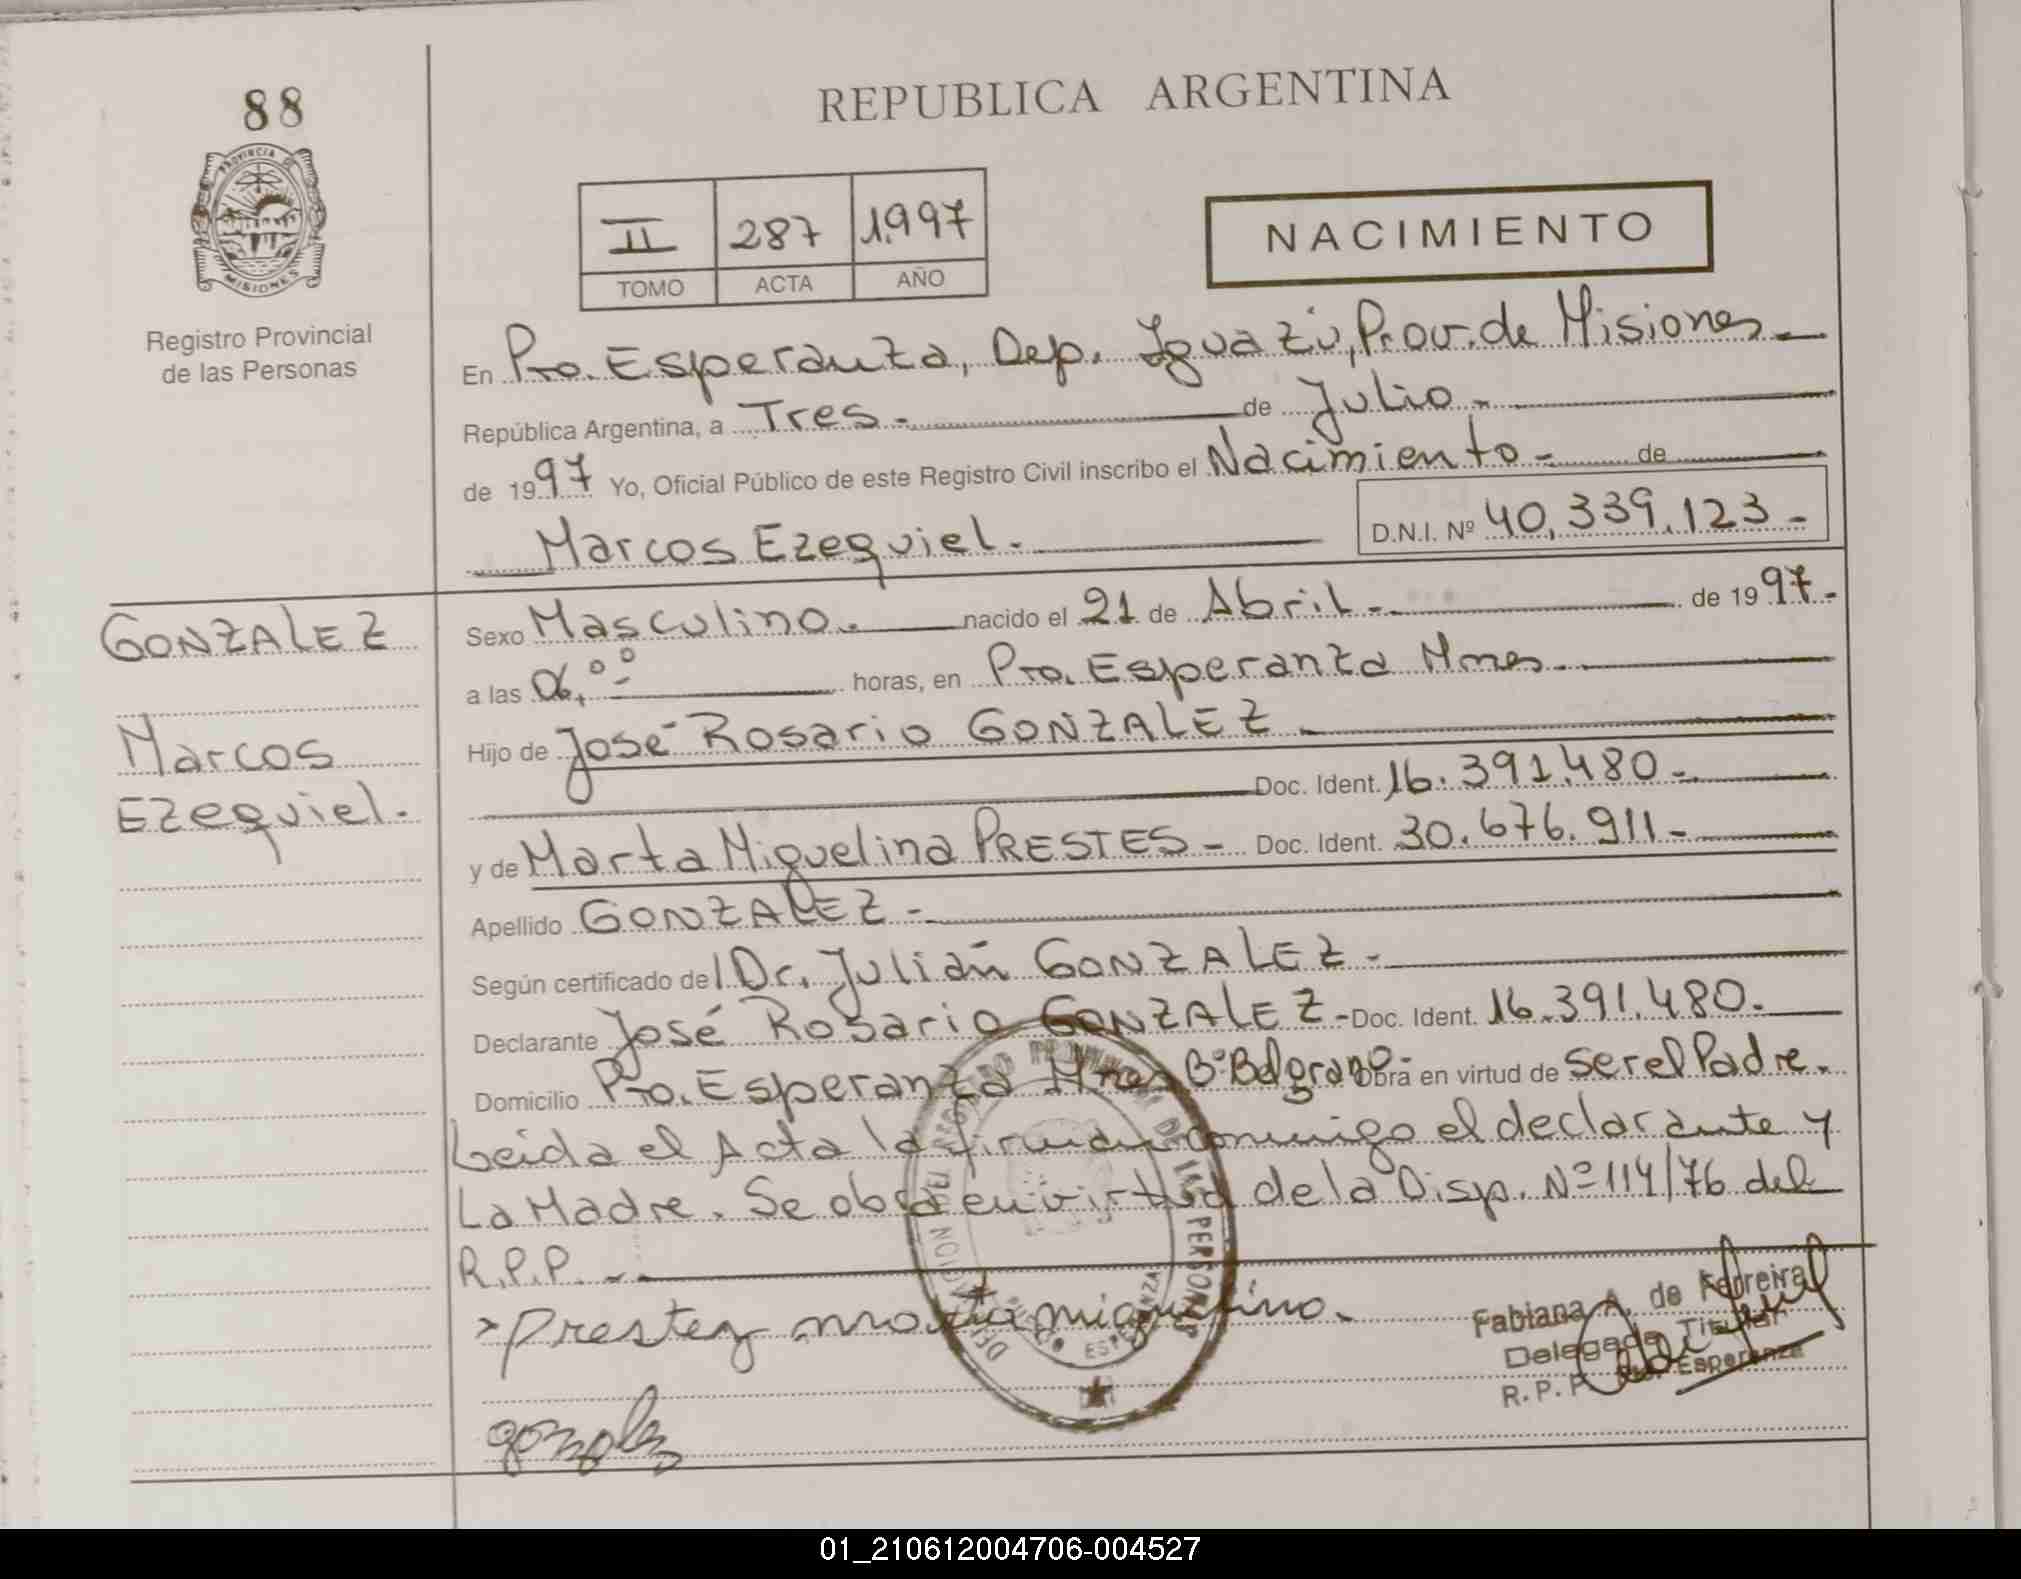 88
PROVINCIA DE
MISIONES
Registro Provincial
de las Personas
REPUBLICA ARGENTINA
II 287 1.997
TOMO ACTA AÑO
NACIMIENTO
En Pto. Esperanza, Dep. Iguazú, Prov. de Misiones -
República Argentina, a Tres - de Julio -
de 1997 Yo, Oficial Público de este Registro Civil inscribo el Nacimiento - de
Marcos Ezequiel. D.N.I. Nº 40,339.123 -
GONZALEZ
Marcos
Ezequiel.
Sexo Masculino. nacido el 21 de Abril - de 1997-
a las 06,00 horas, en Pto. Esperanza Mnes -
Hijo de José Rosario GONZALEZ -
Doc. Ident. 16.391.480 -
y de Marta Miguelina PRESTES - Doc. Ident. 30.676.911 -
Apellido GONZALEZ -
Según certificado del Dr. Julián GONZALEZ -
Declarante José Rosario GONZALEZ - Doc. Ident. 16.391.480.
Domicilio Pto. Esperanza Mnes Bº Belgrano - Obra en virtud de ser el Padre.
Leida el Acta la firman conmigo el declarante y
La Madre. Se obra en virtud de la Disp. Nº 114/76 del
R.P.P. -
Prestez marta miguelina.
gonzalez
Fabiana A. de Ferreira
Delegada Titular
R.P.P. Pto. Esperanza
DELEGACION DEL REGISTRO PROVINCIAL DE LAS PERSONAS
PUERTO ESPERANZA
01_210612004706-004527